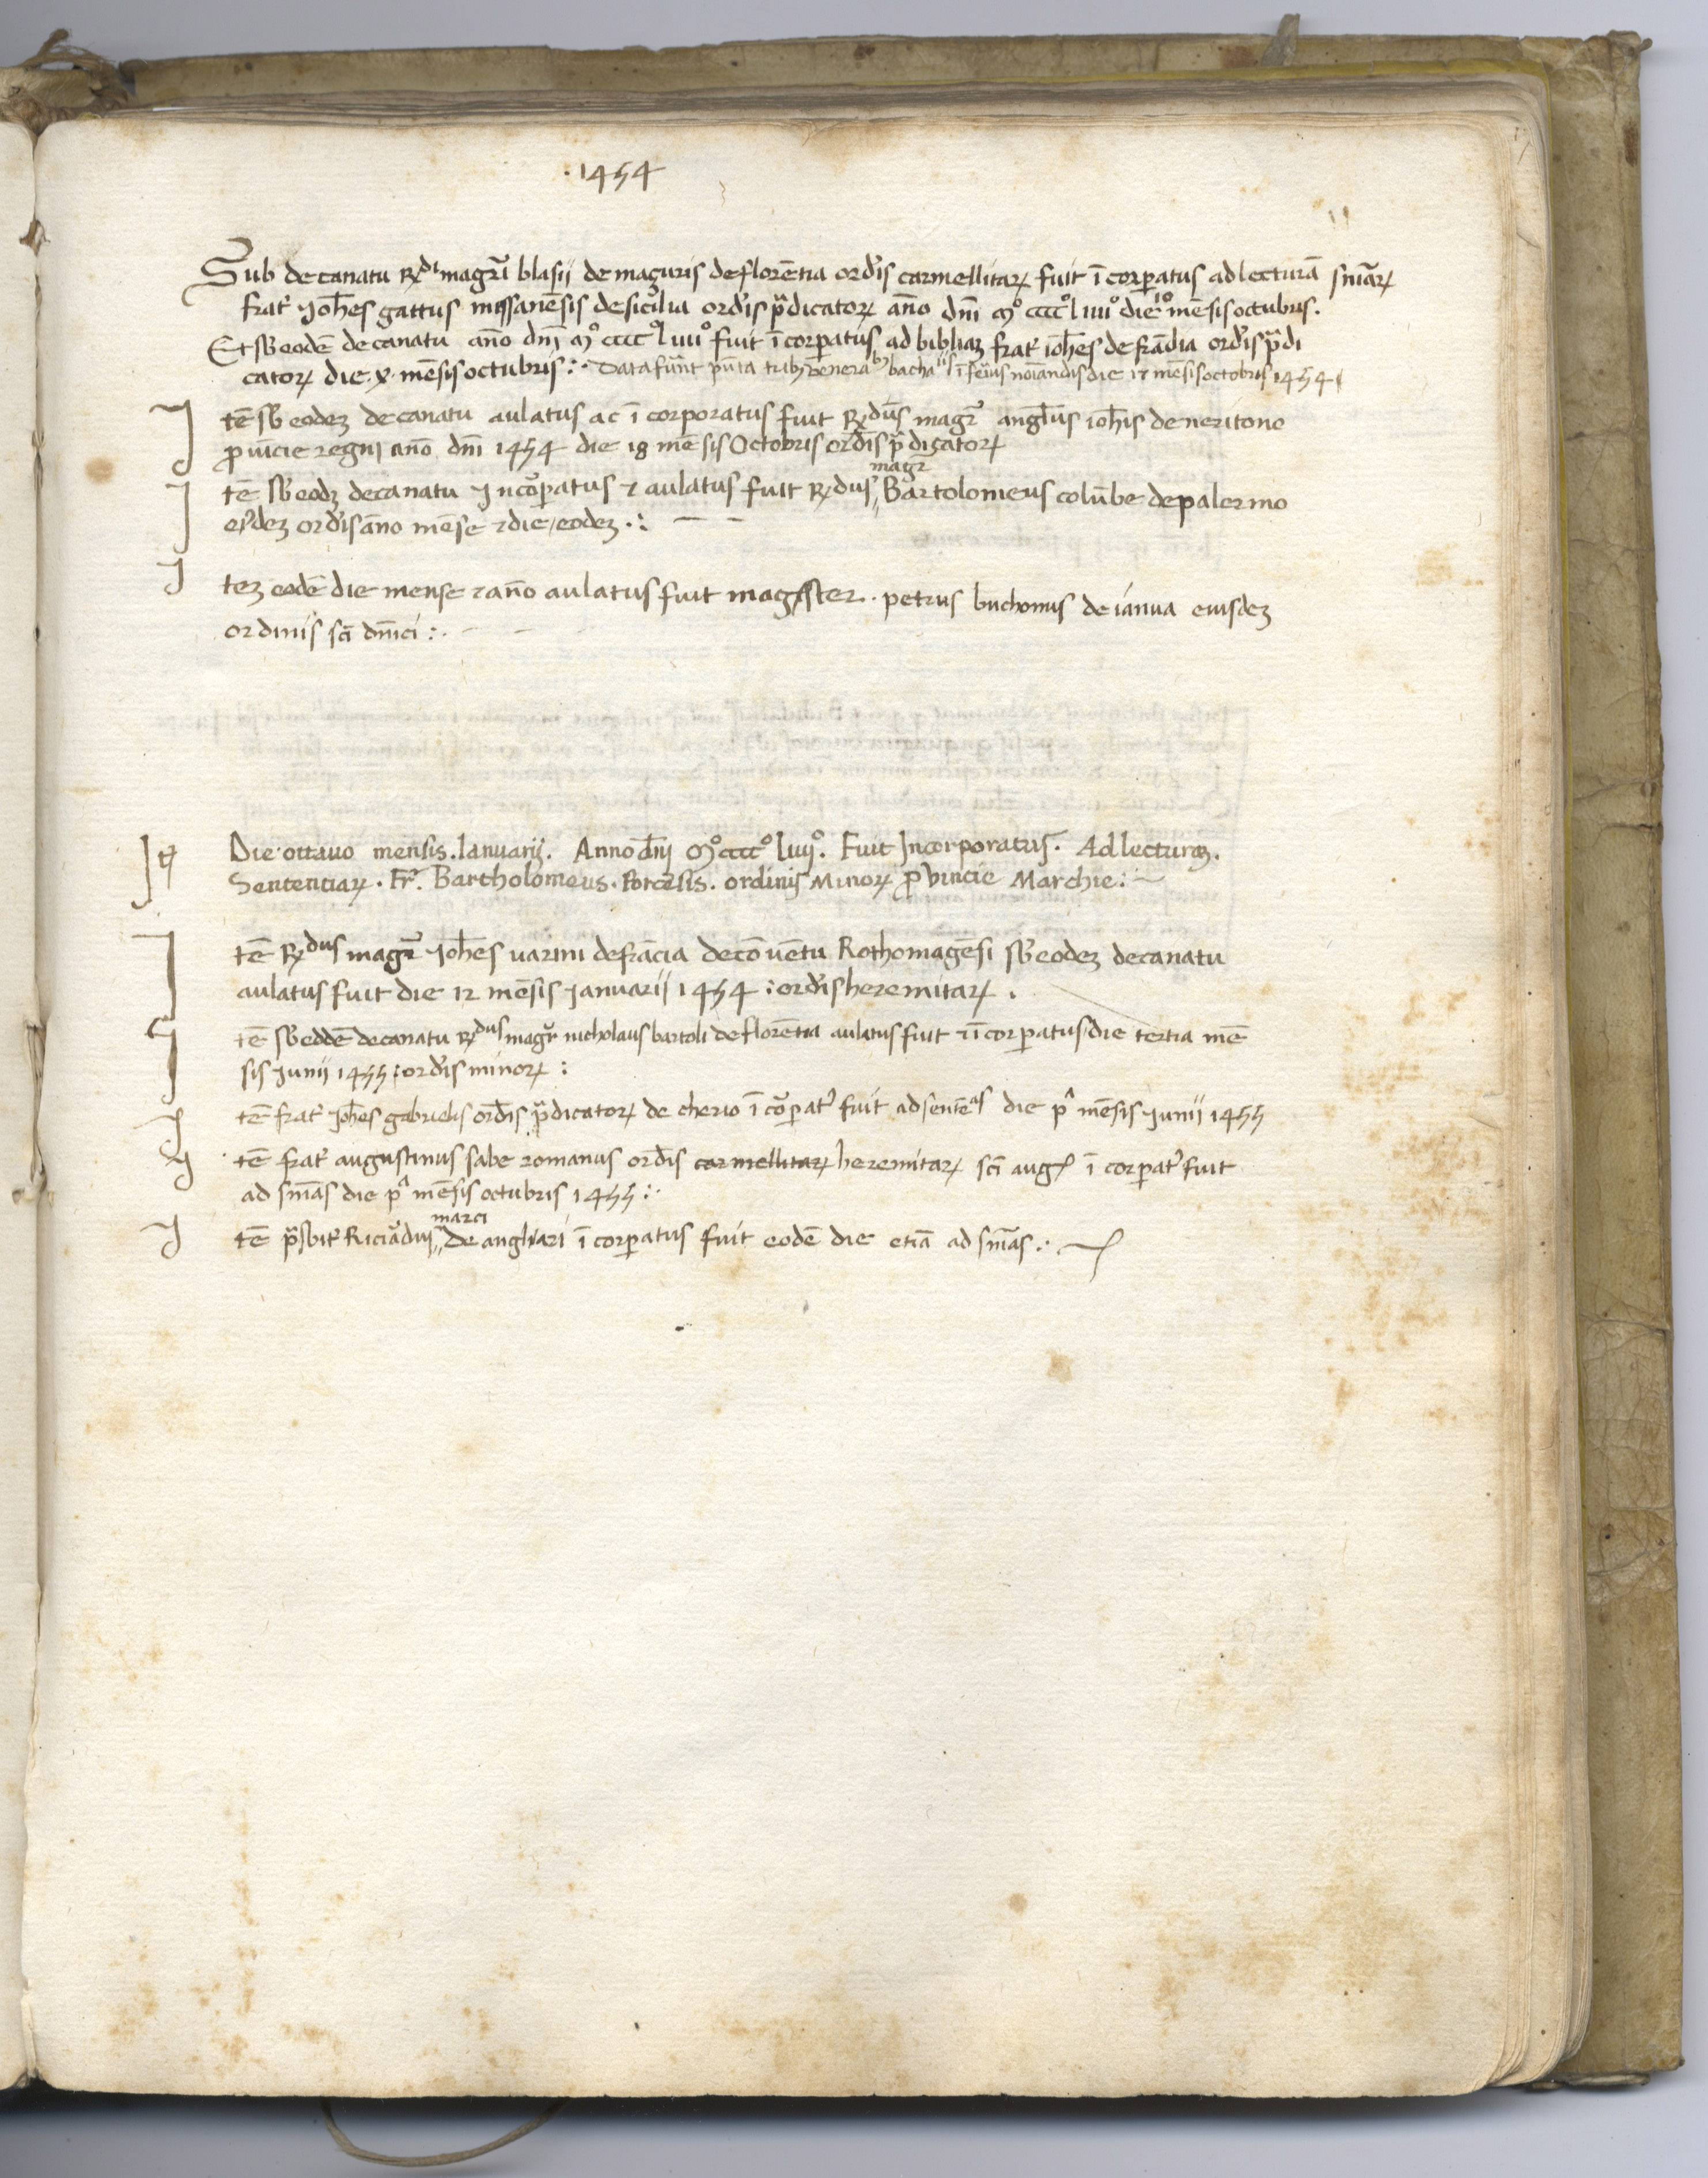 .1454
Sub decanatu Rdi magr̄i blasii de mazuris de florētia ordīs carmellitaꝝ fuit īcorꝑatus ad lecturā sniāꝝ
frat̄ Joh̄es gattus messanēsis de sicilia ordīs p̄dicatoꝝ an̄o dnī Mº ccccº liiiiº die 10 mēsis octubris.
Et sb̄ eodē decanatu an̄o dnī Mº ccccº liiiiº fuit īcorꝑatus ad bibliaꝫ frat̄ ioh̄es de frādia ordīs p̄di
catoꝝ die .x. mēsis octubris :· Data fūnt pūta tribꝫ venerabꝫ bachaiis ī feīus noīandis die 17 mēsis octobris 1454
Itē sb̄ eodeꝫ decanatu aulatus ac īcorporatus fuit Rdūs magr̄ angl̄us ioh̄is de neritono
ꝓuīcie regnj an̄o dnī 1454 die 18 mēsis Octobris ordīs p̄dicatoꝝ
Itē sb̄ eodꝫ decanatu Jncorꝑatus ⁊ aulatus fuit Rdus magr̄ Bartolomeus colūbe de palermo
eiᵈdeꝫ ordīs ān̄o mēse ⁊ die eodeꝫ .:
Iteꝫ eodē die mense ⁊ an̄o aulatus fuit magister . petrus buchonus de ianua euisdeꝫ
ordinis scī dnīci :.
Itē Die ottauo mensis . Ianuarij . Anno dnī Mº ccccº liiijº . Fuit Incorporatus . Ad lecturaꝫ .
Sentenciaꝝ . Fr̄ . Bartholomeus . Porcēsis . ordinis Minoꝝ ꝓvincie Marchie :
Itē Rdus magr̄ Joh̄es uarini de frācia de cōuētu Rothomagēsi sb̄ eodeꝫ decanatu
aulatus fuit die 12 mēsis Januarij 1454 : ordīs heremitaꝝ .
Itē sb̄ eodē decanatu Rdus magr̄ nicholaus bartoli de florētia aulatus fuit ⁊ īcorꝑatus die tertia mē
sis Junij 1455 : ordīs minoꝝ :
Itē frat̄ Joh̄es gabrielis ordīs p̄dicatoꝝ de cherio īcorꝑat̄ fuit ad sentēas die pª mēsis Junii 1455
Itē frat̄ augustinus sabe romanus ordīs carmellitaꝝ heremitaꝝ scī aug īcorꝑat̄ fuit
ad snīas die pª mēsis octubris 1455 :.
Itē p̄sbit̄ Riciardus marci de anghiari īcorꝑatus fuit eodē die etiā ad snīas :.